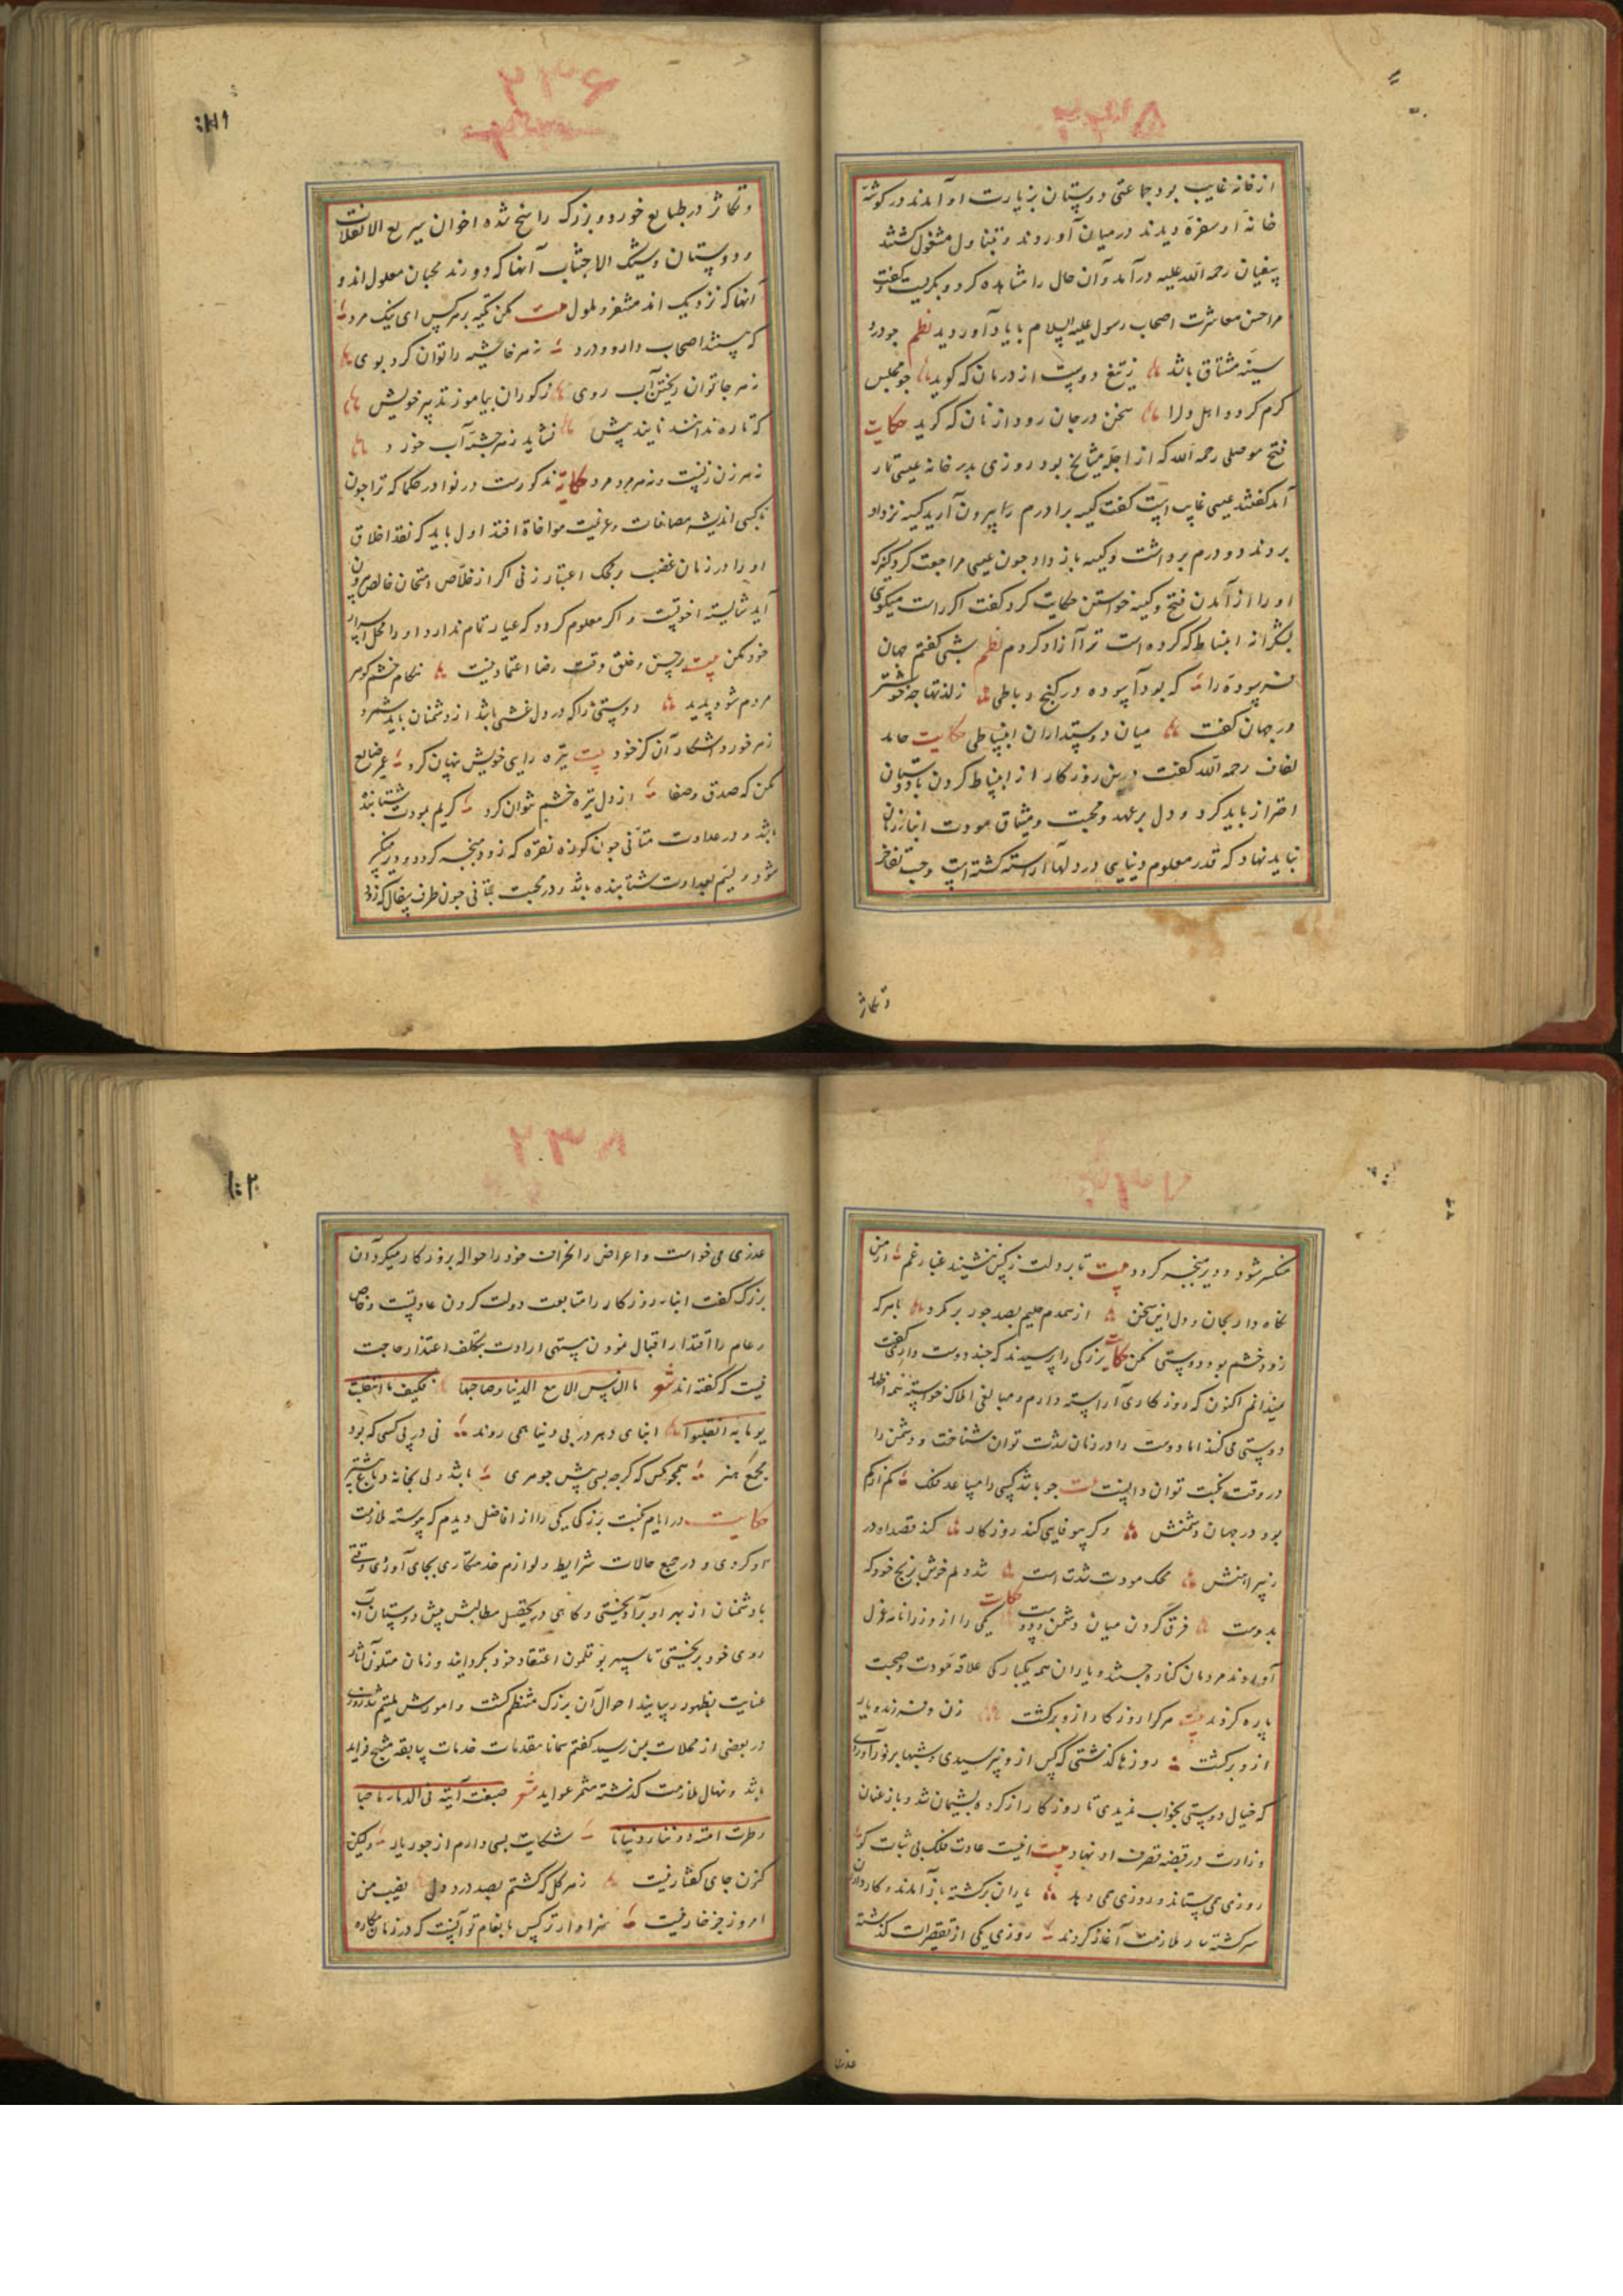 ۲۳۵
از خانه غایب بود جماعتی دوستان بزیارت او آمدند در کوشهٔ
خانهٔ او سفرهٔ دیدند درمیان آوردند و بتناول مشغول کشتند
سفیان رحمه الله علیه درآمد و آن حال را مشاهده کرد و بکریست و کفت
مرا حسن معاشرت اصحاب رسول علیه السلام با یاد آوردید نظم جو درد
سینه مشتاق باشد ز تیغ دوست از درمان که کوید جو مجلس
کرم کردد اهل دلرا سخن درجان رود از نان که کوید حکایت
فتح موصلی رحمه الله که از اجلهٔ مشایخ بود روزی بدر خانه عیسی تمار
آمد کفتند عیسی غایب است کفت کیسه برادرم را بیرون آرید کیسه نزد او
بردند دو درم برداشت و کیسه باز داد جون عیسی مراجعت کرد کنیزک
او را از آمدن فتح و کیسه خواستن حکایت کرد کفت اکر راست میکوی
بشکرانه انبساط که کرده است ترا آزاد کردم نظم شبی کفتم جهان
فرسوده را که بود آسوده در کنج رباطی ز لذتها جه خوشتر
در جهان کفت میان دوستداران انبساطی حکایت حامد
لفاف رحمه الله کفت درین روزکار از انبساط کردن با دوستان
احتراز باید کرد و دل بر عهد و محبت و میثاق مودت ابناء زمان
نباید نهاد که قدر معلوم دنیایی در دلها آراسته کشته است و حب تفاخر
و تکاثر
۲۳۶
و تکاثر در طبایع خورد و بزرک راسخ شده اخوان سریع الانقلاب
و دوستان وشیک الاجتناب آنها که دورند محبان معلول اند و
آنها که نزدیک اند متنفر و ملول بیت مکن تکیه بر هر کس ای نیک مرد
که بیشند اصحاب دارو و درد نه هر خاشیه را توان کرد بوی
نه هر جا توان ریختن آب روی ز کوران بیاموز تدبیر خویش
که تا ره ندانند نایند پیش نشاید ز هر چشمه آب خورد
نه هر زن زنست و نه هر مرد مرد حکایة مذکورست در نوادر حکما که ترا جون
با کسی اندیشه مصافات و عزیمت مواخاة افتد اول باید که نقد اخلاق
او را در زمان غضب بر محک اعتبار زنی اکر از خلاص امتحان خالص بیرون
آید شایسته اخوتست و اکر معلوم کردد که عیار تمام ندارد او را محل اسرار
خود مکن بیت بر حسن و خلق وقت رضا اعتماد نیست هنکام خشم کوهر
مردم شود پدید دوستی را که در دل غشی باشد از دشمنان باید شمرد
بیت تیره رایی خویش نهان کرد عمر ضایع
مکن که صدق و صفا از دل تیره خشم نتوان کرد کریم بمودت شتابنده
باشد و در عداوت متأنی جون کوزه نقره که زود نیجسه کردد و دیر منکسر
شود و لئیم بعداوت شتابنده باشد و در محبت متأنی جون ظرف سفال که زود
۲۳۷
منکسر شود و دیر نیجسه کردد بیت تا بر دلت ز کس ننشیند غبار غم از من
نکاه دار بجان و دل این سخن از همدم حلیم بصد جور بر مکرد با هر که
زود خشم بود دوستی مکن حکایت بزرکی را پرسیدند که جند دوست داری کفت
نمیدانم اکنون که روزکاری آراسته دارم و مبالغی املاک خواسته همه اظهار
دوستی می کنند اما دوست را در زمان شدت توان شناخت و دشمن را
در وقت نکبت توان دانست بیت جو باشد کسی را مساعد فلک کم آزکم
بود در جهان دشمنش وکر بیوفایی کند روزکار کند قصد او در
پیراهنش محک مودت شدت است شد دلم خوش برنج خود که
بدوست فرق کردن میان دشمن و دوست حکایت یکی را از وزرا نامه عزل
آوردند مردمان کناره جستند و یاران همه یکبارکی علاقه مودت و صحبت
پاره کردند بیت هر کرا روزکار ازو برکشت زن و فرزند و یار
ازو برکشت روزها کذشتی که کس ازو نپرسیدی و شبها بروز آوردی
که خیال دوستی بخواب ندیدی تا روزکار از کرده پشیمان شد و باز عنان
وزارت در قبضه تصرف او نهاد بیت اینست عادت فلک بی ثبات کو
روزی همی ستاند و روزی همی دهد یاران برکشته باز آمدند و کارداران
سرکشته باز ملازمت آغاز کردند روزی یکی از تقصیرات کذشته
عذری
۲۳۸
عذری می خواست و اعراض و انحراف خود را حواله بروزکار میکرد آن
بزرک کفت ابناء روزکار را متابعت دولت کردن عادتست و خاص
و عام را اقتدا باقبال نمودن سنتی ارادت بتکلف اعتذار حاجت
نیست که کفته اند شعر ما الناس الا مع الدنیا وصاحبها فکیف ما انقلبت
یوما به انقلبوا ابنای دهر در پی دنیا همی روند نی در پی کسی که بود
مجمع هنر همجو مکس که کرجه بسی پیش جوهری باشد ولی بخانه دباغ بیشتر
حکایت در ایام نکبت بزرکی یکی را از افاضل دیدم که پیوسته ملازمت
او کردی و در جمیع حالات شرایط و لوازم خدمتکاری بجای آوردی وقتی
با دشمنان از بهر او برآویختی و کاهی در تحصیل مطالبش پیش دوستان آب
روی خود بریختی تا سپهر بوقلمون اعتقاد خود بکردانید و زمان متلون آثار
عنایت بظهور رسانید احوال آن بزرک منتظم کشت و امورش ملتئم شد روزی
در بعضی از محلات بمن رسید کفتم همانا مقدمات خدمات سابقه منتج فواید
باشد و نهال ملازمت کذشته مثمر عواید شعر
شکایت بسی دارم از جور یار ولیکن
کزن جای کفتار نیست ز هر کل که کشتم بصد درد دل نصیب من
امروز جز خار نیست سزاوارتر کس بانعام تو آنست که در زمان مکاره